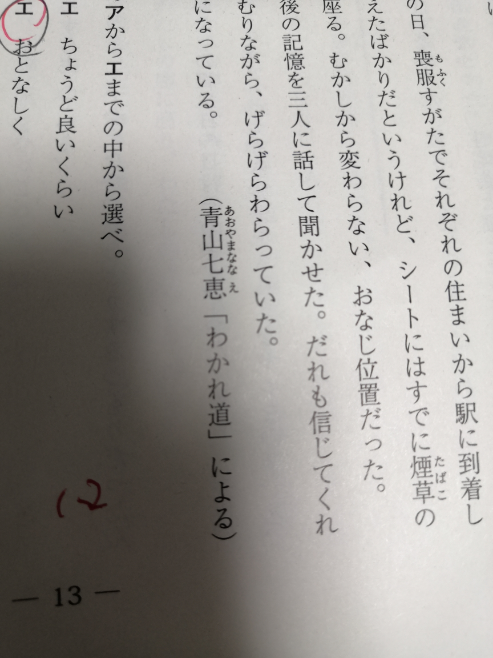 の日、喪服すがたでそれぞれの住まいから駅に到着し
もふく
えたばかりだというけれど、シートにはすでに煙草の
たばこ
座る。むかしから変わらない、おなじ位置だった。
後の記憶を三人に話して聞かせた。だれも信じてくれ
むりながら、げらげらわらっていた。
になっている。
(青山七恵「わかれ道」による)
あおやまななえ
アからエまでの中から選べ。
エ ちょうど良いくらい
エ おとなしく
12
— 13 —